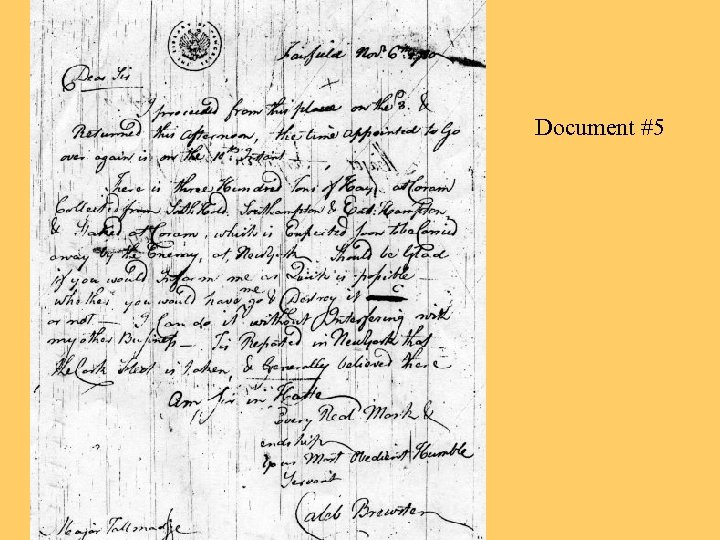 Fairfield Nov. 6th 1780
Dear Sir
I proceeded from this place on the 3. &
Returned this afternoon, the time appointed to Go
over again is on the 10th Instant
There is three Hundred Tons of Hay at Coram
Collected from South Hampton & East Hampton
& Staked at Coram, which is Expected soon to be Carried
away by the Enemy, at, NewYork Should be Glad
if you would Inform me as Quick is posible
whether you would have me go & Destroy it
or not — I Can do it without Interfering with
my other Business — Tis Reported in NewYork that
the Cork fleet is taken, & Generally believed there
Am Sir in Haste
Every Real Mark &
Your Most Obedient Humble
Servant
Caleb Brewster
Major Tallmadge
Document #5